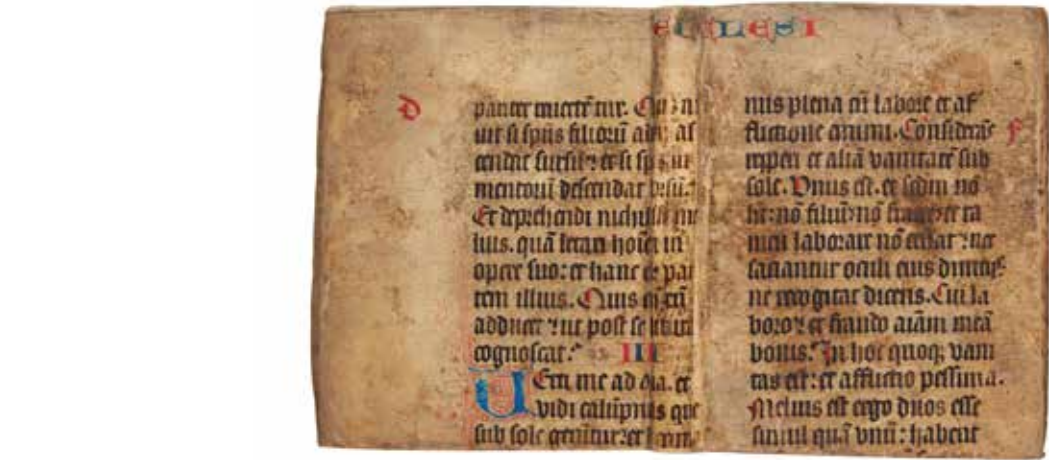 ECCLESI
D
uit si sp̄us filioruȷ̄ as
cendat sursū ⁊ et si
mentoruȷ̄ descendat
Et deprehendi nichil
lius. quā letari hoīeȷ̄ in
opere suo: et hanc par
tem illius. Quis
adducet ⁊ ut post se
cognoscat. IIII
Uerti me ad et
vidi calūpnias que
sub sole gerūtur: et
nus plena cū labore et af
flictione animi. Considerās
repperi et aliā vanitatē sub
F
sole. Unus est. et scdm nō
ht: nō filiū: nō et ta
men laborare nō cessat: nec
satiantur oculi eius diuitijs:
ne recogitat dicens. Cui la
boro: et fraudo aīam meā
bonis: In hoc quoqꝫ vani
tas est: et afflictio pessima.
Melius est ergo duos esse
simul quā vnū: habent